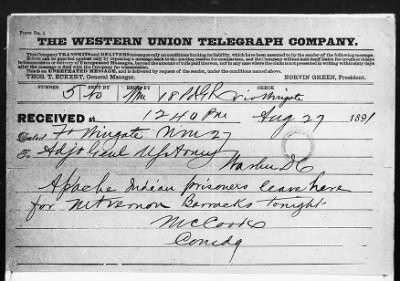 Form No. 1.
THE WESTERN UNION TELEGRAPH COMPANY.
This Company TRANSMITS and DELIVERS messages only on conditions limiting its liability, which have been assented to by the sender of the following message.
Errors can be guarded against only by repeating a message back to the sending station for comparison, and the Company will not hold itself liable for errors or delays
in transmission or delivery of Unrepeated Messages, beyond the amount of tolls paid thereon, nor in any case where the claim is not presented in writing within sixty days
after the message is filed with the Company for transmission.
This is an UNREPEATED MESSAGE, and is delivered by request of the sender, under the conditions named above.
THOS. T. ECKERT, General Manager. NORVIN GREEN, President.
NUMBER SENT BY REC'D BY CHECK
5 No 18 Pd GR via Wingate
RECEIVED at 1240 PM Aug 27 1891
Dated Ft Wingate NM 27
To Adjt Genl US Army
Washn DC
Apache Indian prisoners leave here
for Mt Vernon Barracks tonight
McCook
Comdg